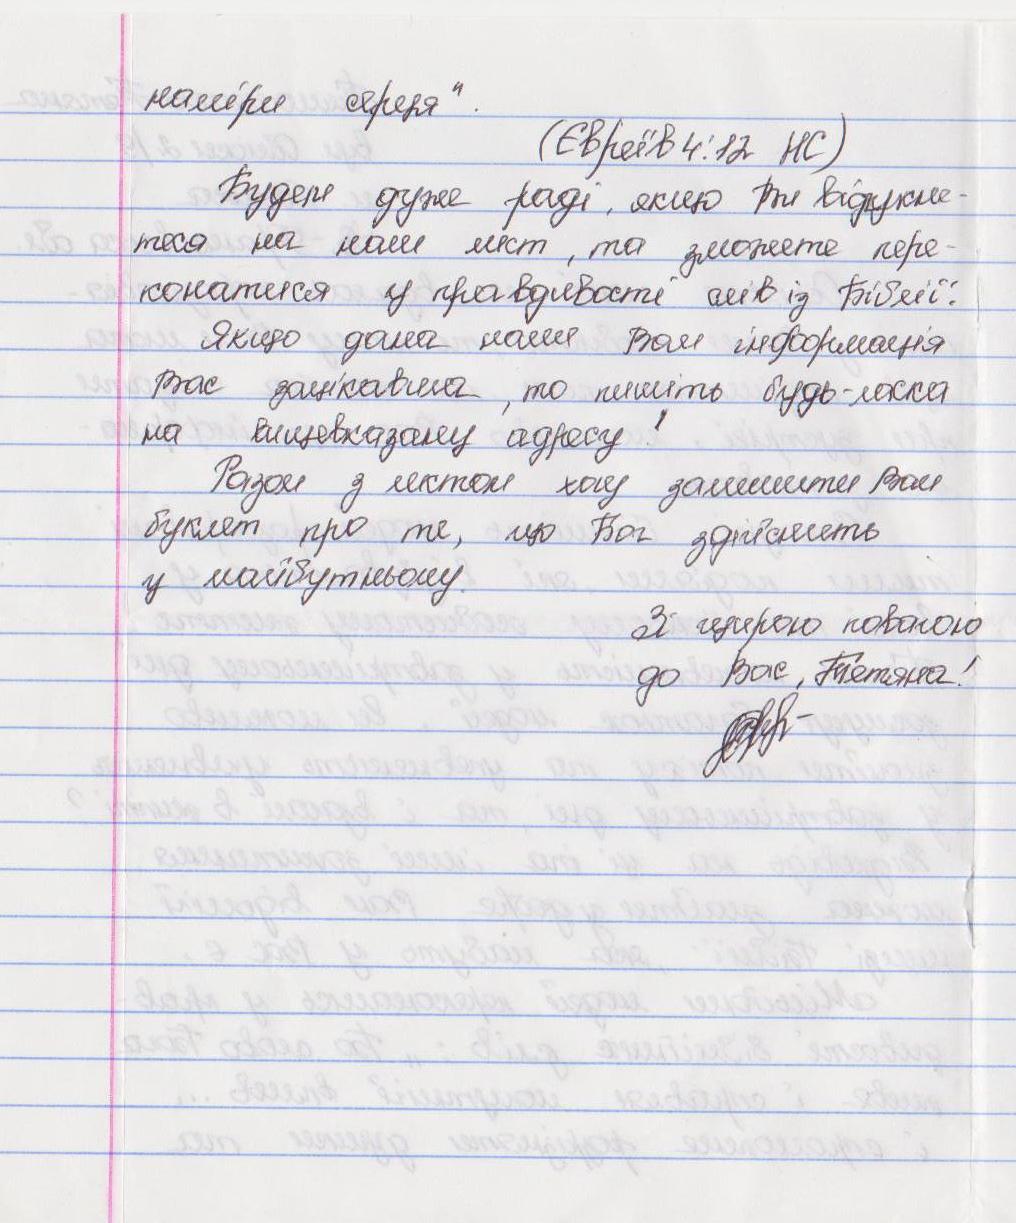 наміри серця".
(Євреїв 4:12 НС)
Будем дуже раді, якщо Ви відгукне-
теся на наш лист, та зможете пере-
конатися у правдивості слів із Біблії.
Якщо дана нами Вам інформація
Вас зацікавила, то пишіть будь-ласка
на вищевказану адресу!
Разом з листом хочу залишити Вам
буклет про те, що Бог здійснить
у майбутньому.
Зі щирою повагою
до Вас, Тетяна!